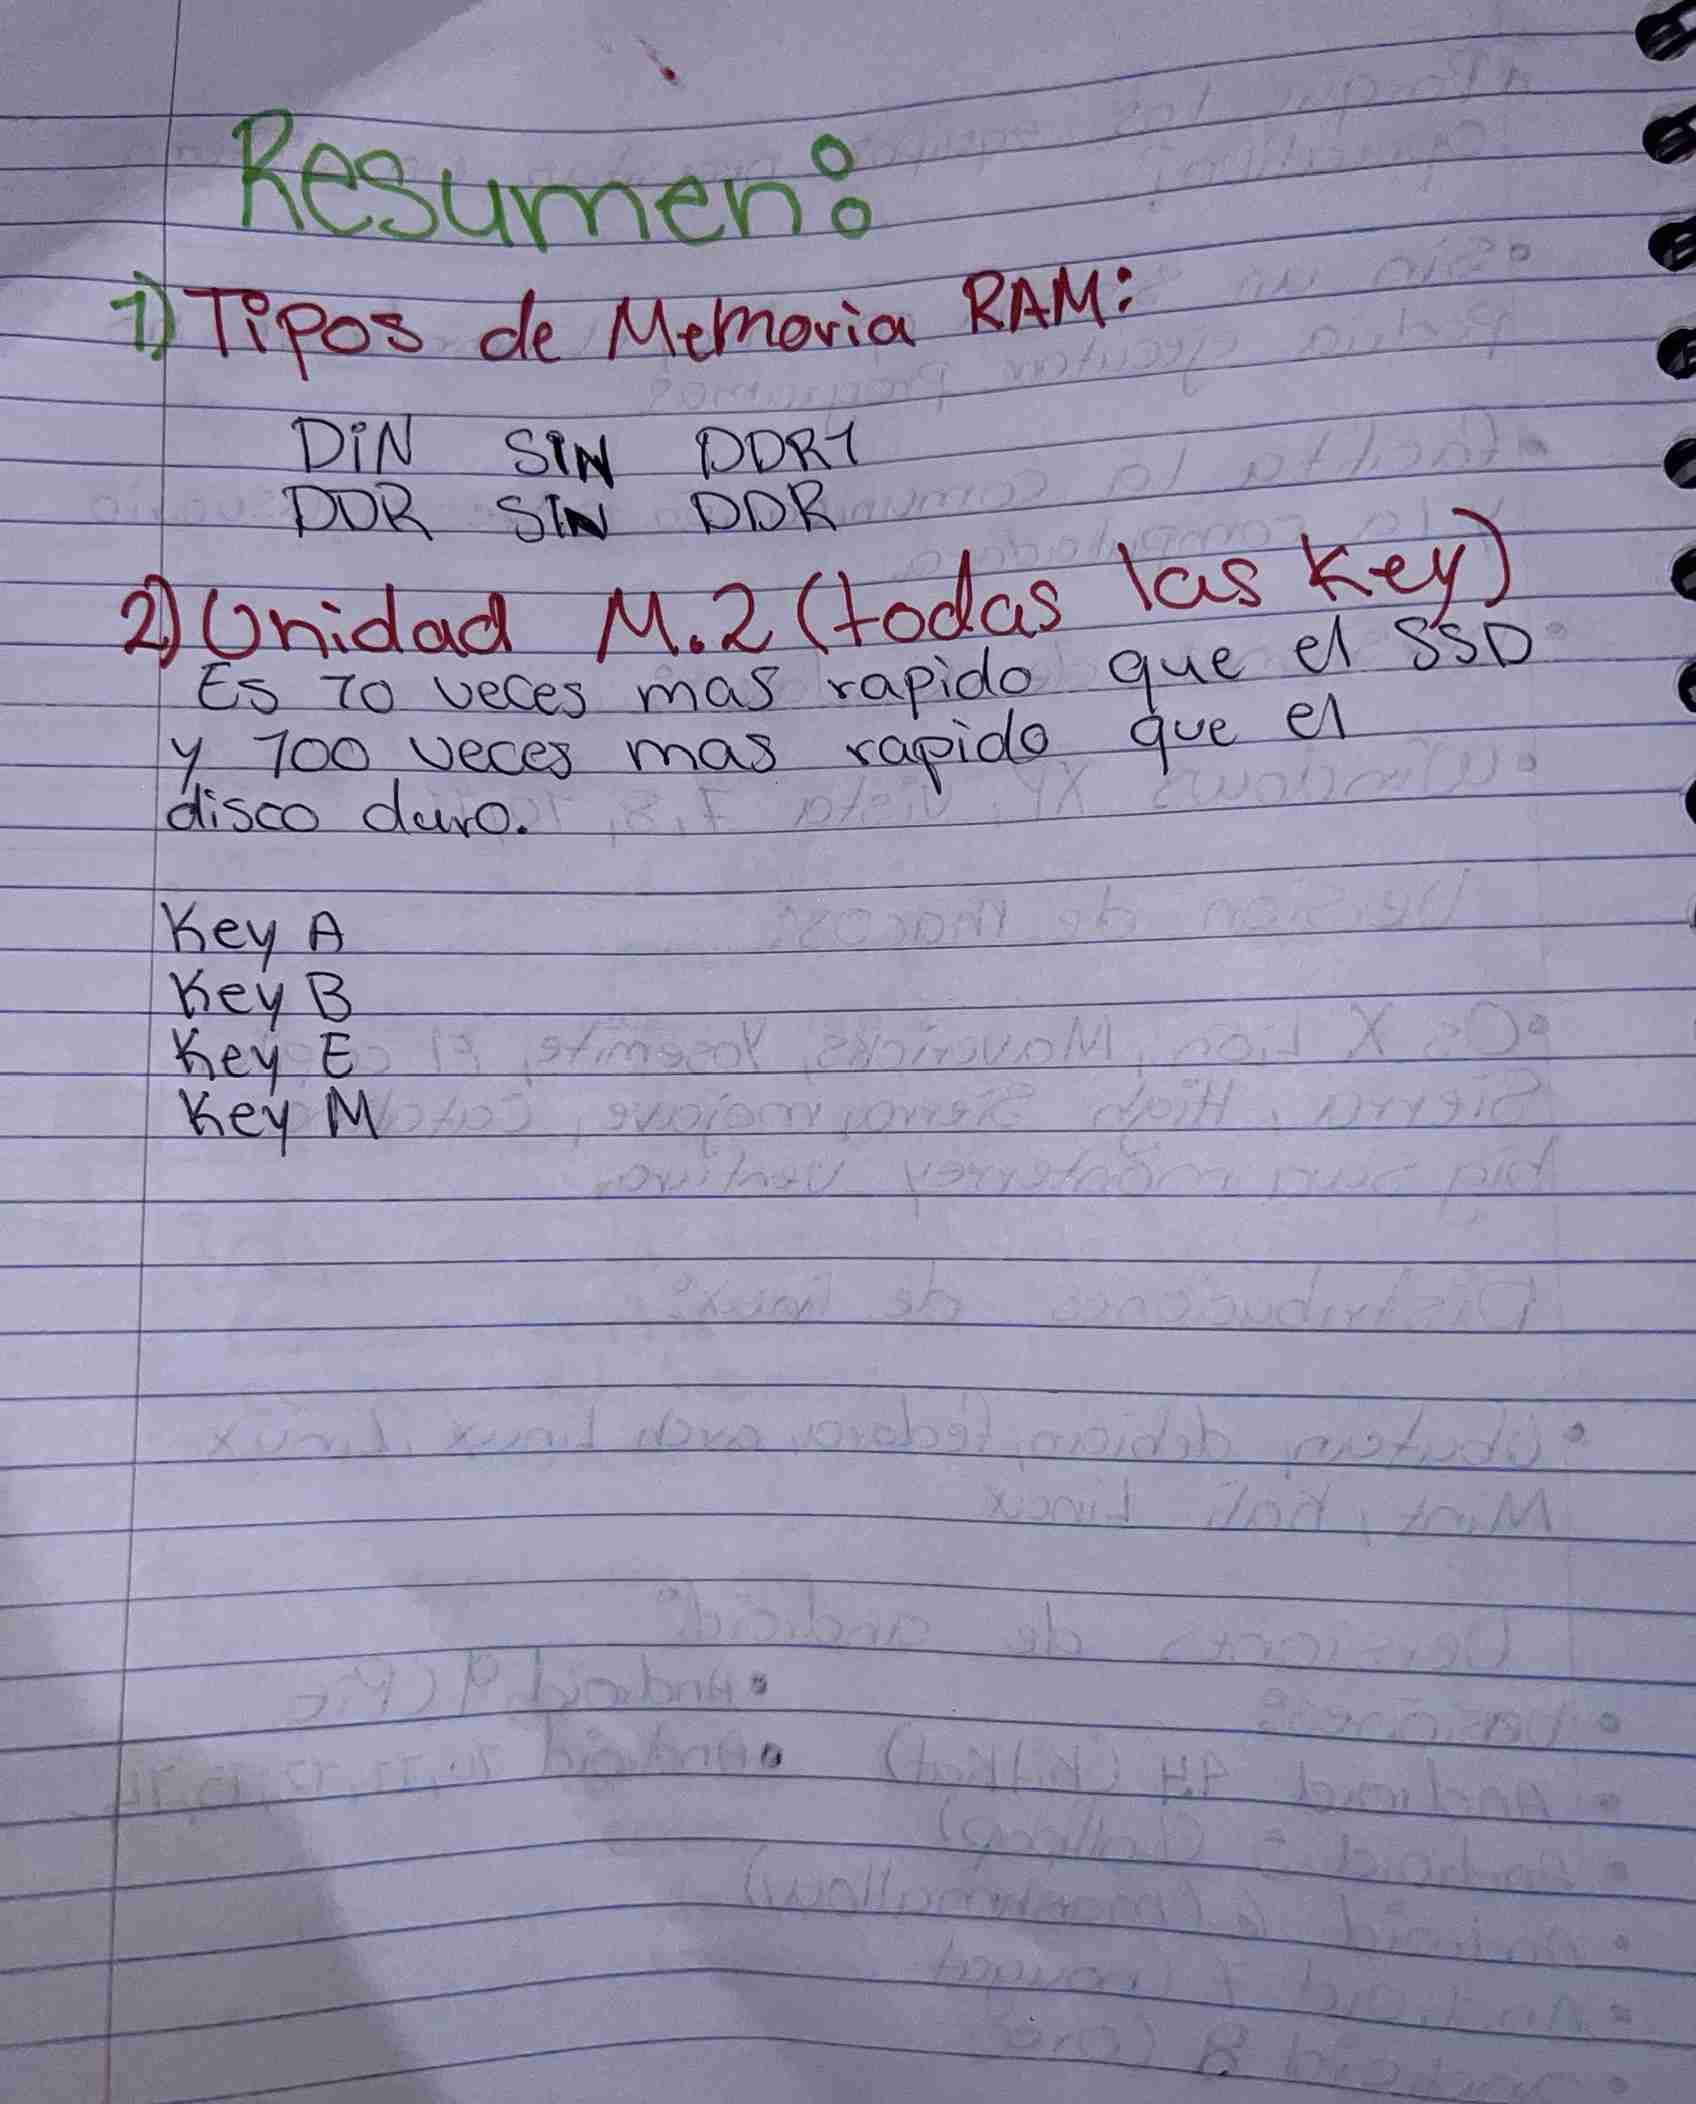 Resumen:
1) Tipos de Memoria RAM:
DiN SIN DDR1
DDR SIN DDR
2) Unidad M.2 (todas las Key)
Es 10 veces mas rapido que el SSD
y 100 veces mas rapido que el
disco duro.
Key A
Key B
Key E
Key M